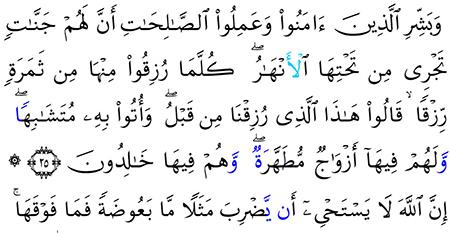 وَبَشِّرِ ٱلَّذِينَ ءَامَنُواْ وَعَمِلُواْ ٱلصَّـٰلِحَـٰتِ أَنَّ لَهُمْ جَنَّـٰتٍ
تَجْرِى مِن تَحْتِهَا ٱلْأَنْهَـٰرُ ۖ كُلَّمَا رُزِقُواْ مِنْهَا مِن ثَمَرَةٍ
رِّزْقًا ۙ قَالُواْ هَـٰذَا ٱلَّذِى رُزِقْنَا مِن قَبْلُ ۖ وَأُتُواْ بِهِۦ مُتَشَـٰبِهًا ۖ
وَلَهُمْ فِيهَآ أَزْوَٰجٌ مُّطَهَّرَةٌ ۖ وَهُمْ فِيهَا خَـٰلِدُونَ ﴿٢٥﴾ ۞
إِنَّ ٱللَّهَ لَا يَسْتَحْىِۦٓ أَن يَضْرِبَ مَثَلًا مَّا بَعُوضَةً فَمَا فَوْقَهَا ۚ